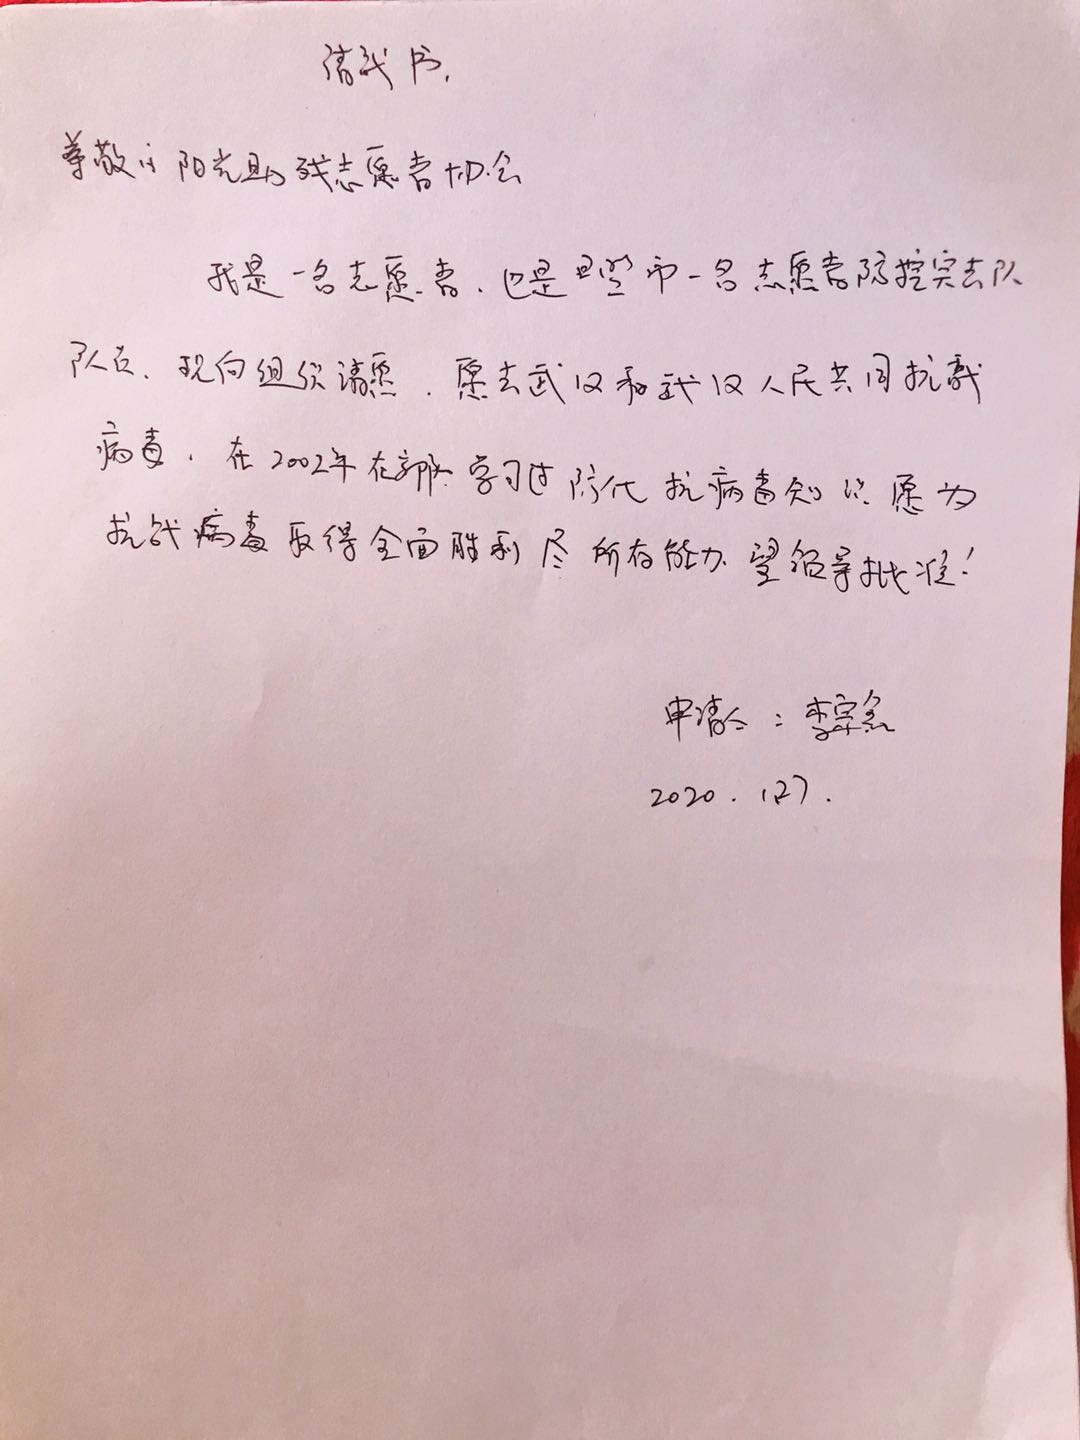 请战书.
尊敬的阳光助残志愿者协会
我是一名志愿者、也是 市一名志愿者防控突击队
队员、现向组织请愿.愿去武汉和武汉人民共同抗战
病毒.在2002年在部队学习过防化抗病毒知识愿为
抗战病毒取得全面胜利尽所有能力.望领导批准!
申请人:李宗
2020.127.